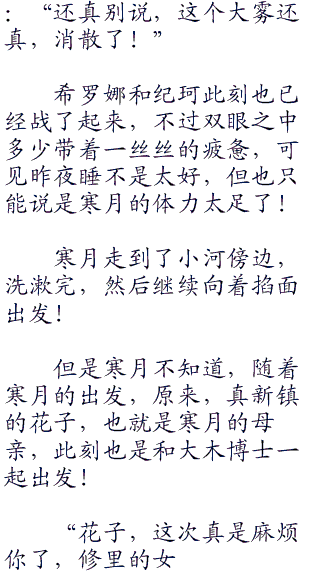 ：“还真别说，这个大雾还
真，消散了！”
希罗娜和纪珂此刻也已
经战了起来，不过双眼之中
多少带着一丝丝的疲惫，可
见昨夜睡不是太好，但也只
能说是寒月的体力太足了！
寒月走到了小河傍边，
洗漱完，然后继续向着掐面
出发！
但是寒月不知道，随着
寒月的出发，原来，真新镇
的花子，也就是寒月的母
亲，此刻也是和大木博士一
起出发！
“花子，这次真是麻烦
你了，修里的女